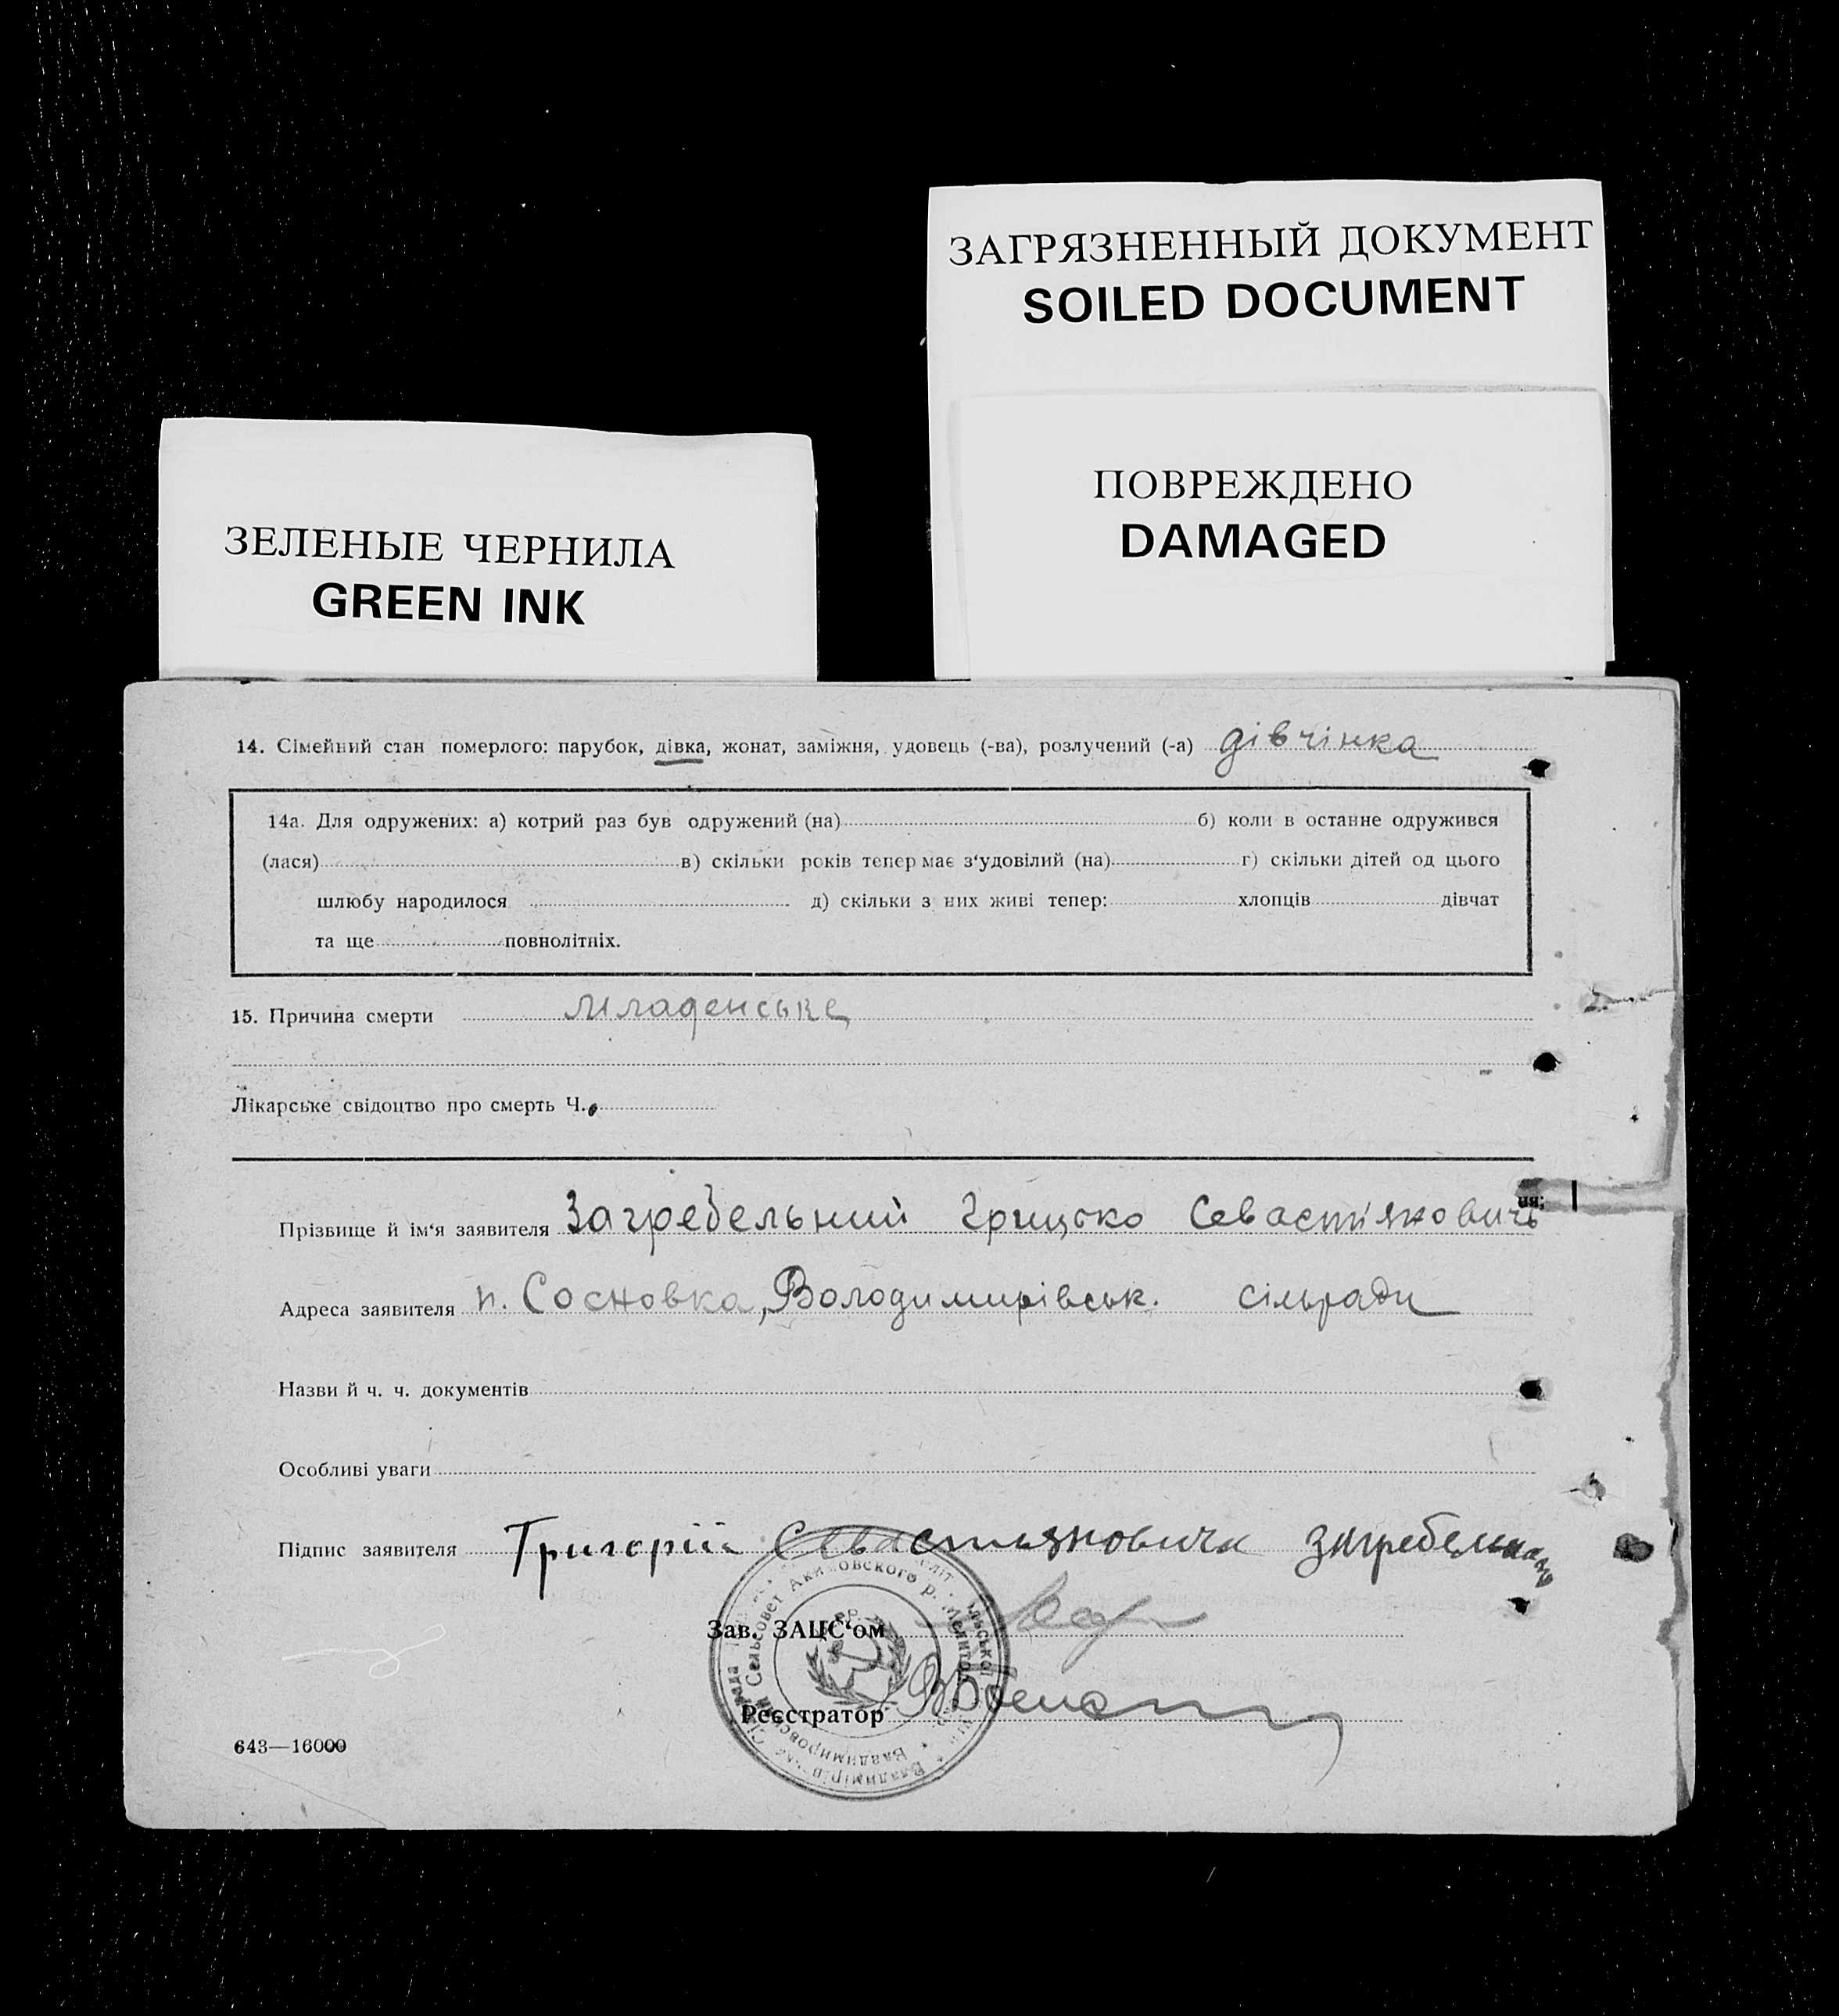 ЗАГРЯЗНЕННЫЙ ДОКУМЕНТ
SOILED DOCUMENT
ПОВРЕЖДЕНО
DAMAGED
ЗЕЛЕНЫЕ ЧЕРНИЛА
GREEN INK
14. Сімейний стан померлого: парубок, дівка, жонат, заміжня, удовець (-ва), розлучений (-а) дівчінка
14а. Для одружених: а) котрий раз був одружений (на) б) коли в останне одружився
(лася) в) скільки років тепер має з'удовілий (на) г) скільки дітей од цього
шлюбу народилося д) скільки з них живі тепер: хлопців дівчат
та ще повнолітніх.
15. Причина смерти Младенське
Лікарське свідоцтво про смерть Ч.
Прізвище й ім'я заявителя Загребельний Грицько Севастіяновичь
Адреса заявителя п. Сосновка, Володимирівськ. сільради
Назви й ч. ч. документів
Особливі уваги
Підпис заявителя Григорій Севастьяновича Загребельного
Зав. ЗАЦС'ом
Реєстратор
Сельсовет Акимовского р. Мелитоп
Владимировский
643—16000